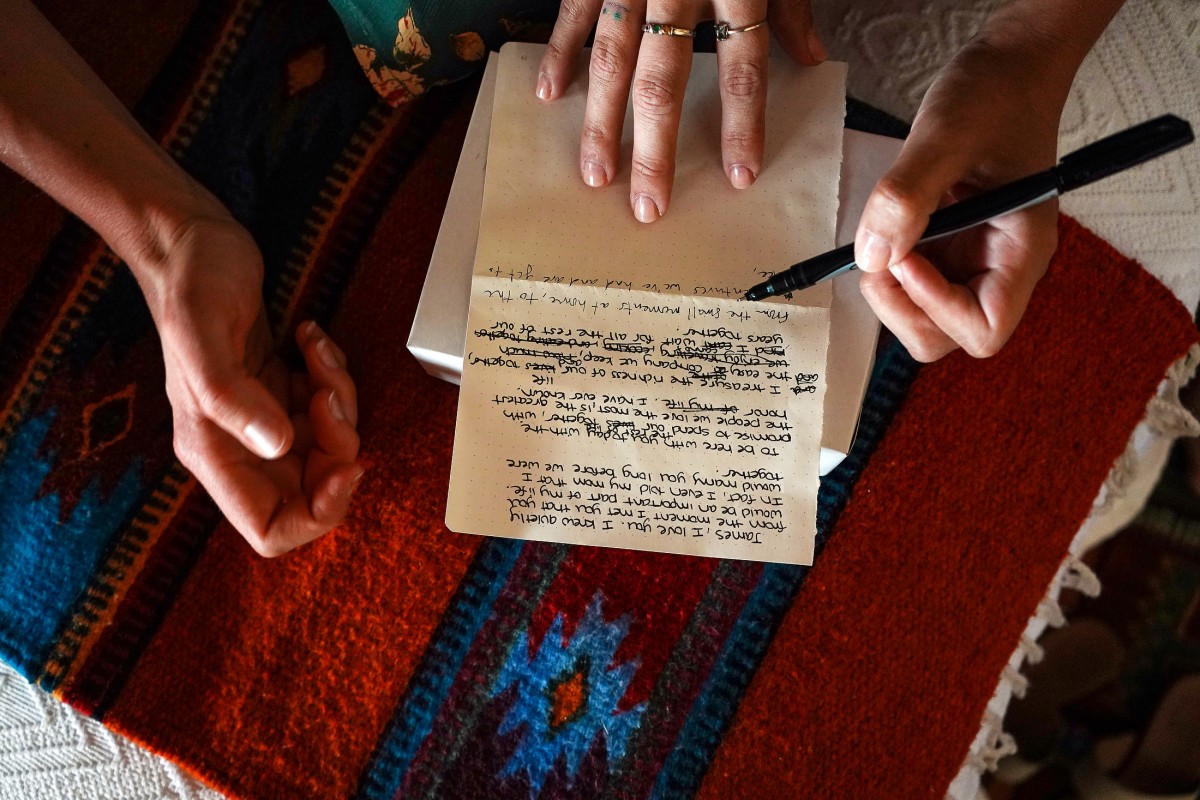 James, I love you. I knew quietly
from the moment I met you that you
would be an important part of my life.
In fact, I even told my mom that I
would marry you long before we were
together.
To be here with you today with the
promise to spend our lives together, with
the people we love the most, is the greatest
honor of my life. I have ever known.
life
I treasure the richness of our lives together,
and the easy company we keep,
wait for all the rest of our
years together.
From the small moments at home, to the
we've had and are yet to